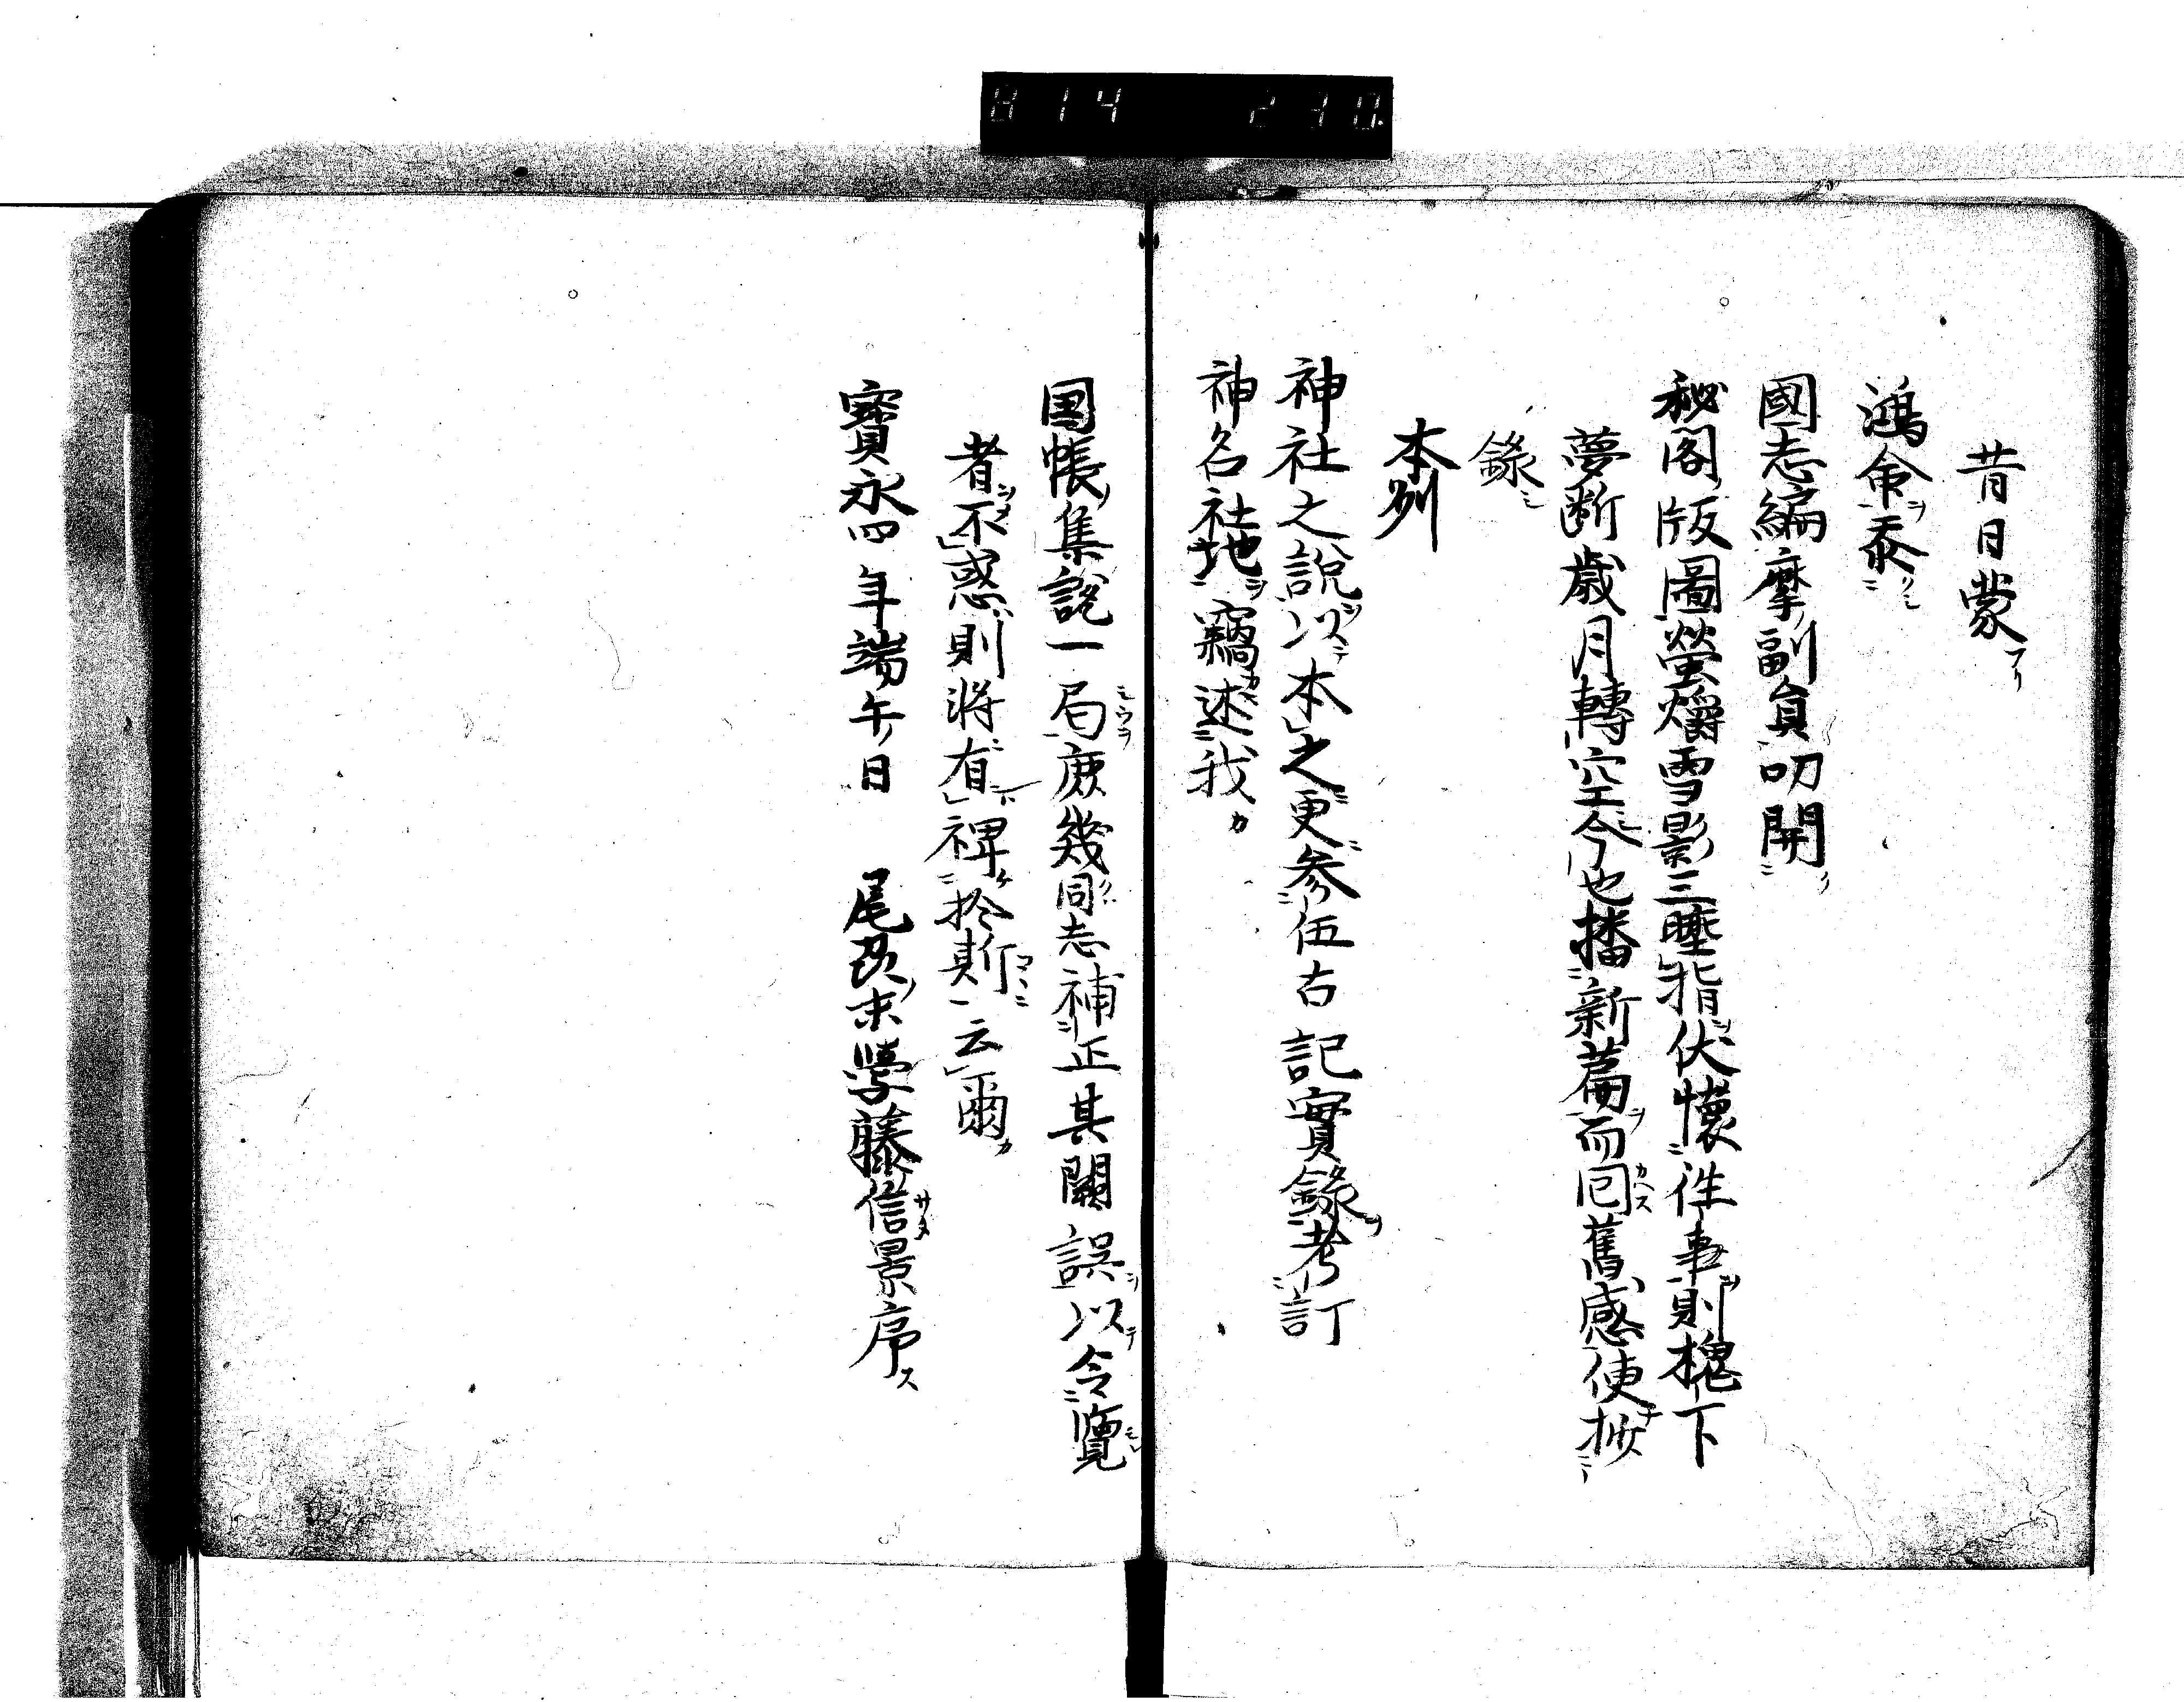 昔日蒙
鴻命忝
國志編摩副員叨開
秘閣版圖螢爝雪影三睡指伏懷徃事則槐下
夢断歳月轉空今也播新篇而囘舊感使抄
錄
本州
神社之說以本之更参伍古記實錄考訂
神名社地竊述我
国帳集説一局庶幾同志補正其闕誤以令覽
者不惑則將有裨於斯云爾
寶永四年端午日 尾張末學藤信景序
814 230